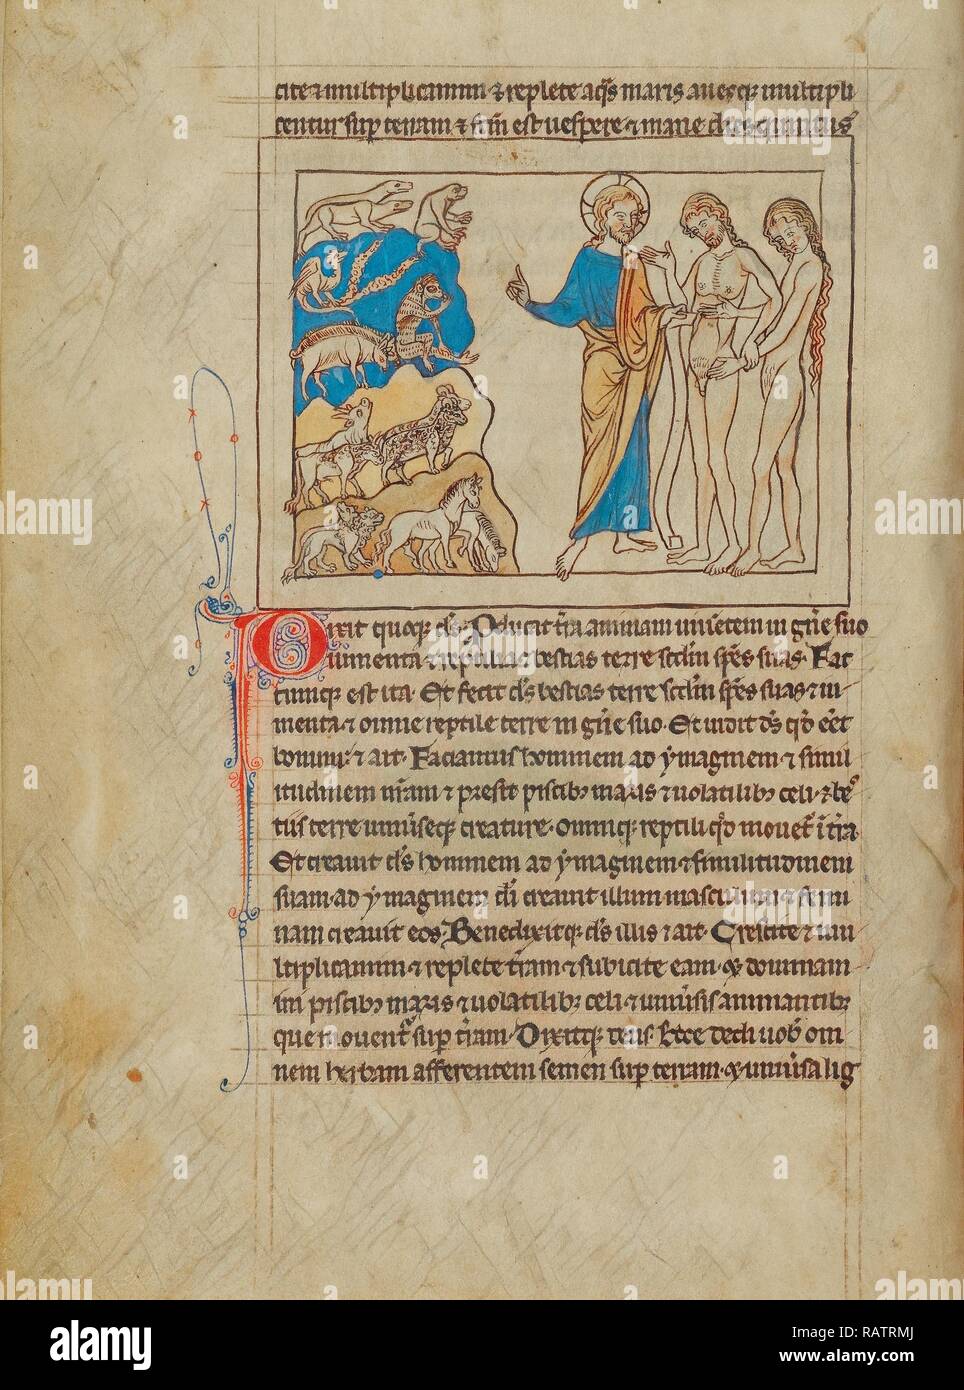 cite & multiplicamini & replete aq̄s maris auesq; multipli
centur sup̄ terram & fc̄m est uespere & mane dies quintus
Dixit quoq; ds̄. Producat tr̄a animam uiuētem in gn̄e suo
iumenta & reptilia & bestias terre scdm̄ spēs suas. Fac
tumq; est ita. Et fecit ds̄ bestias terre scdm̄ spēs suas & iu
menta & omne reptile terre in gn̄e suo. Et uidit ds̄ qd̄ eēt
bonum. & ait. Faciamus hominem ad ymaginem & simil
itudinem nr̄am & presit piscib; maris & uolatilib; celi. & be
tiis terre uniu̅seq; creature. omniq; reptili qd̄ mouet̄ i̅ tr̄a
Et creauit ds̄ hominem ad ymaginem & similitudinem
suam. ad ymaginem dī creauit illum masculum & femi
nam creauit eos. Benedixitq; ds̄ illis & ait. Crescite & mu
ltiplicamini & replete tr̄am & subicite eam. & dominam
ini piscib; maris & uolatilib; celi & uniu̅sis animantib;
que mouent̄ sup̄ tr̄am. Dixitq; deus. Ecce dedi uob̄ om
nem herbam afferentem semen sup̄ terram. & uniu̅sa lig
alamy
Image ID: RATRMJ
www.alamy.com